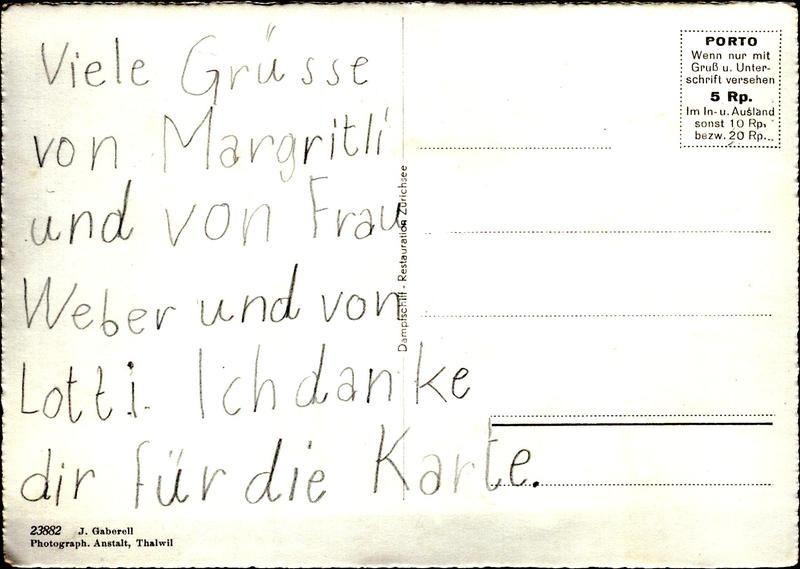 Viele Grüsse
von Margritli
und von Frau
Weber und von
Lotti. Ich danke
dir für die Karte.
PORTO
Wenn nur mit
Gruß u. Unter-
schrift versehen
5 Rp.
Im In- u. Ausland
sonst 10 Rp.
bezw. 20 Rp.
Dampfschiff - Restauration Zürichsee
23882 J. Gaberell
Photograph. Anstalt, Thalwil